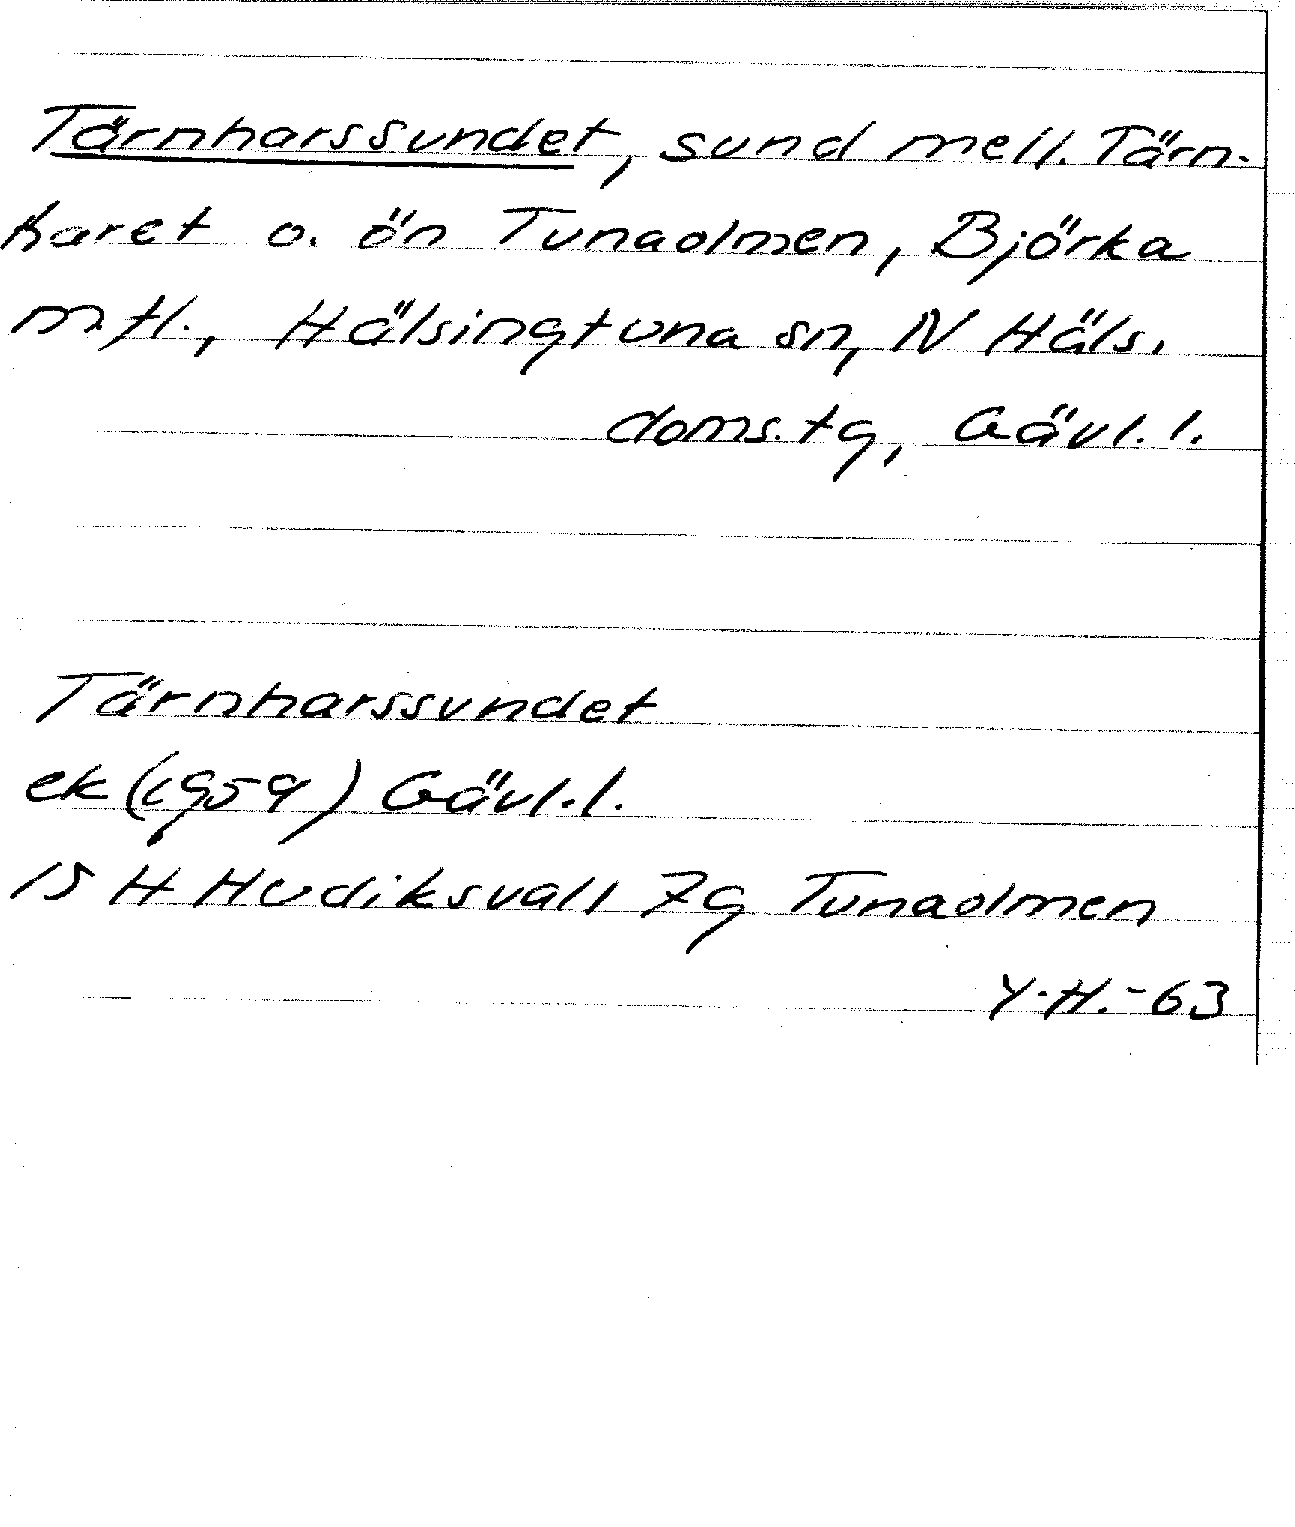 Tärnharssundet, sund mell. Tärn-
haret o. ön Tunaolmen, Björka
mtl., Hälsingtuna sn, N Häls.
doms.tg, Gävl. l.
Tärnharssundet
ek (1959) Gävl. l.
15 H Hudiksvall 7g Tunaolmen
Y.H.-63